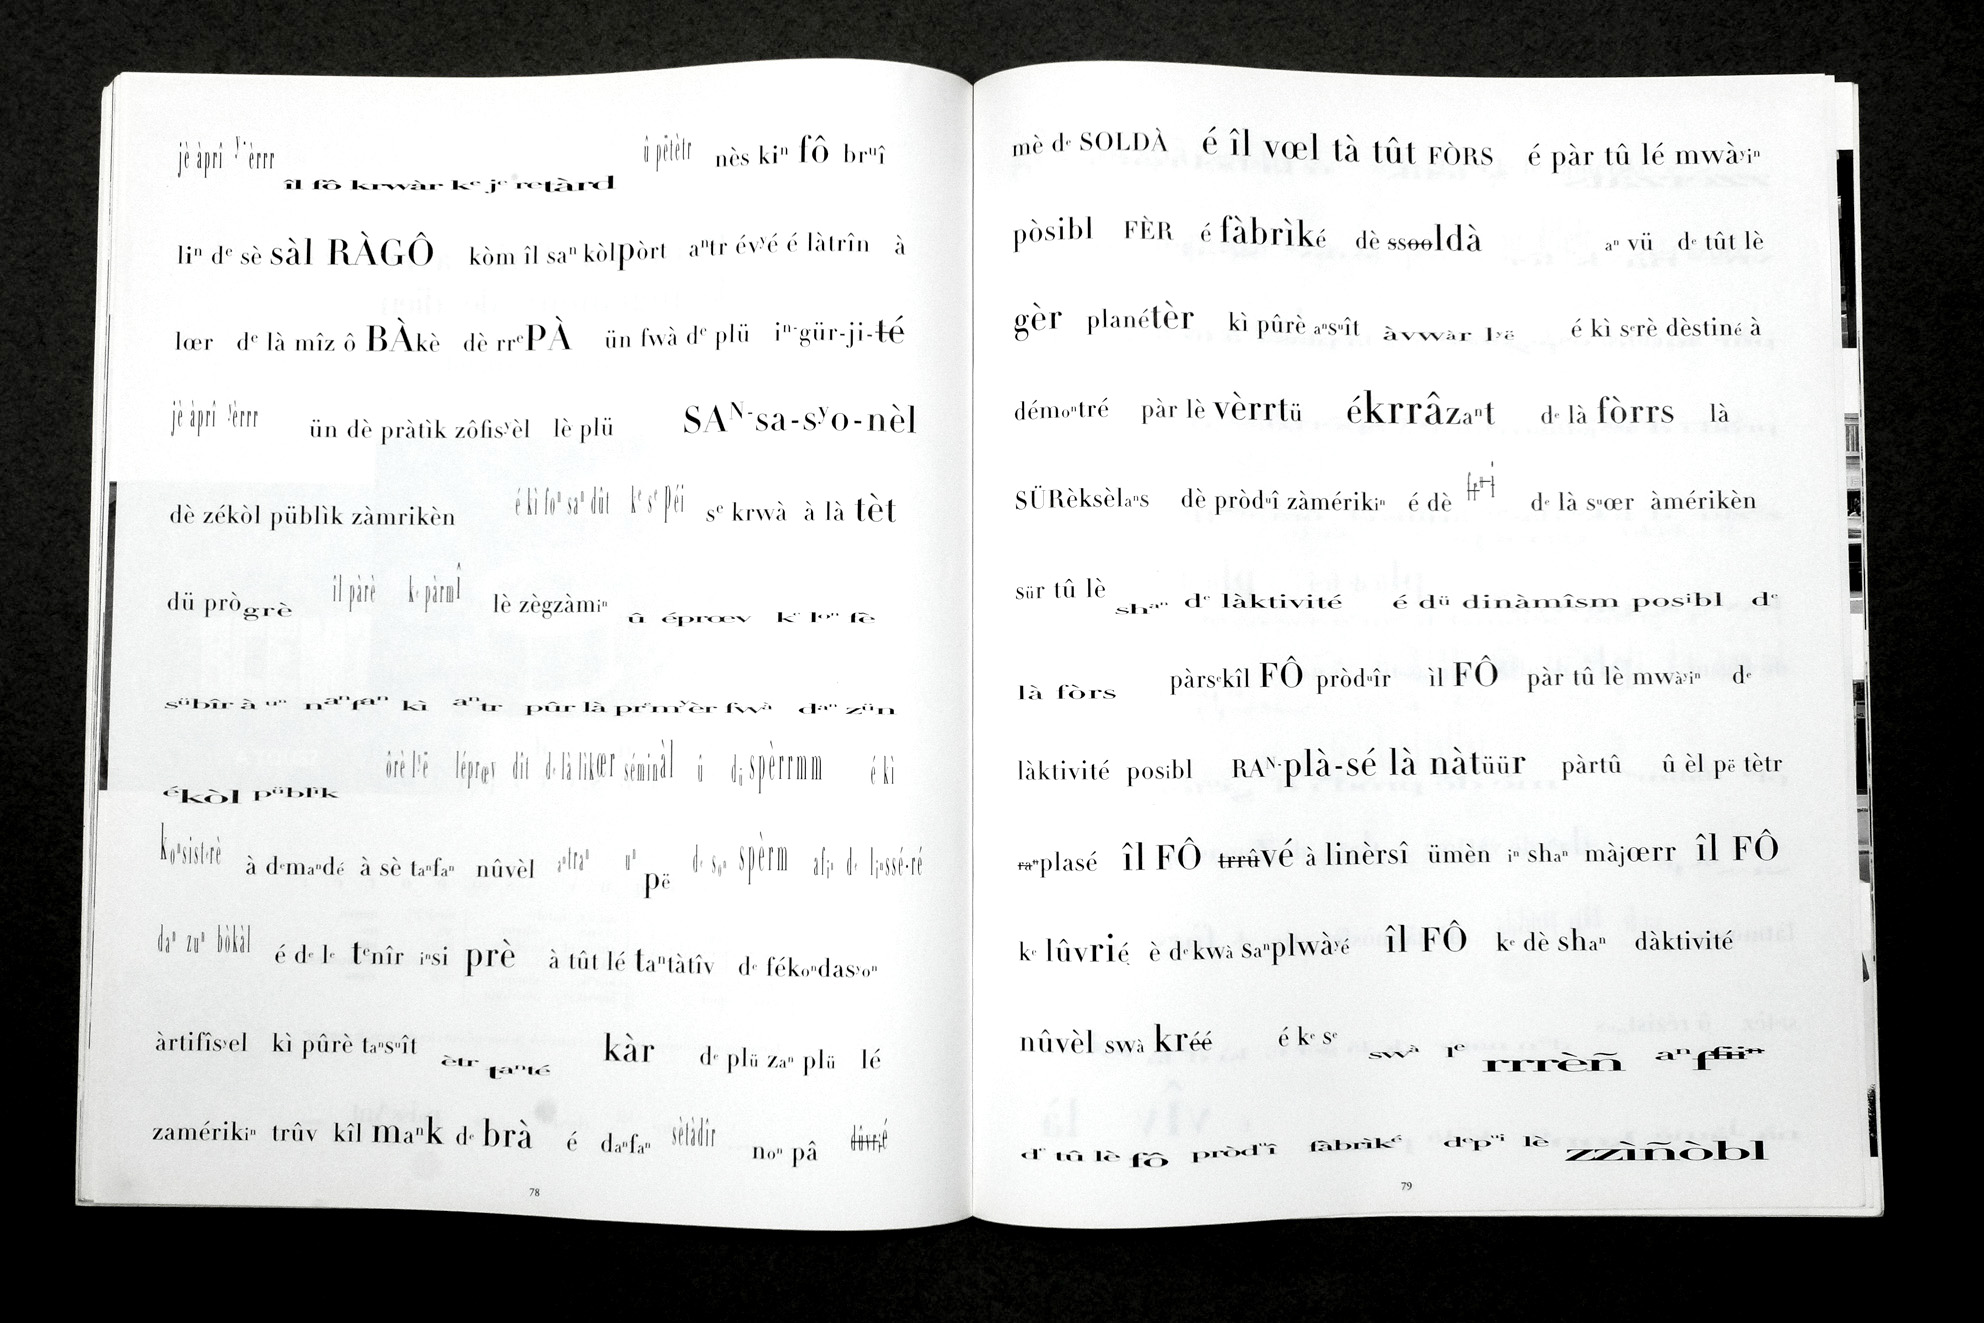 jè àprî yèrrr îl fô krwàr ke je retàrd û pëtètr nès kin fô bruî
lin de sè sàl RÀGÔ kòm îl san kòlpòrt antr évyé é làtrîn à
lœr de là mîz ô BÀkè dè rrePÀ ün fwà de plü in-gür-ji-té
jè àprî yèrrr ün dè pràtìk zôfisyèl lè plü SAN-sa-syo-nèl
dè zékòl püblìk zàmrikèn é kì fon san dût ke se péi se krwà à là tèt
dü prògrè îl pàrè ke pàrmî lè zègzàmin û éprœv ke lon fè
sübîr à un nanfan kì antr pûr là premyèr fwà dan zün
ékòl püblìk ôrè lyë léprœv dit de là likœr séminàl û dü spèrrmm é kì
konsisterè à demandé à sè tanfan nûvèl antran un pë de son spèrm afin de linssé-ré
dan zun bòkàl é de le tenîr insi prè à tût lé tantàtîv de fékondasyon
àrtifîsyel kì pûrè tansuît ètr tanté kàr de plü zan plü lé
zamérikin trûv kîl mank de brà é danfan sètàdîr non pâ dûvrié
78
mè de SOLDÀ é îl vœl tà tût FÒRS é pàr tû lé mwàyin
pòsibl FÈR é fàbrìké dè ssooldà an vü de tût lè
gèr planétèr kì pûrè ansuît àvwàr lyë é kì serè dèstiné à
démontré pàr lè vèrrtü ékrrâzant de là fòrrs là
SÜRèksèlans dè pròduî zàmérikin é dè de là suœr àmérikèn
sür tû lè shan de làktivité é dü dinàmîsm posibl de
là fòrs pàrsekîl FÔ pròduîr ìl FÔ pàr tû lè mwàyin de
làktivité posibl RAN-plà-sé là nàtüür pàrtû û èl pë tètr
ranplasé îl FÔ trrûvé à linèrsî ümèn in shan màjœrr îl FÔ
ke lûvrié è dekwà sanplwàyé îl FÔ ke dè shan dàktivité
nûvèl swà kréé é ke se swà re rrrèñ an fiin
de tû lè fô pròduî fàbrìké depui lè zzìñòbl
79